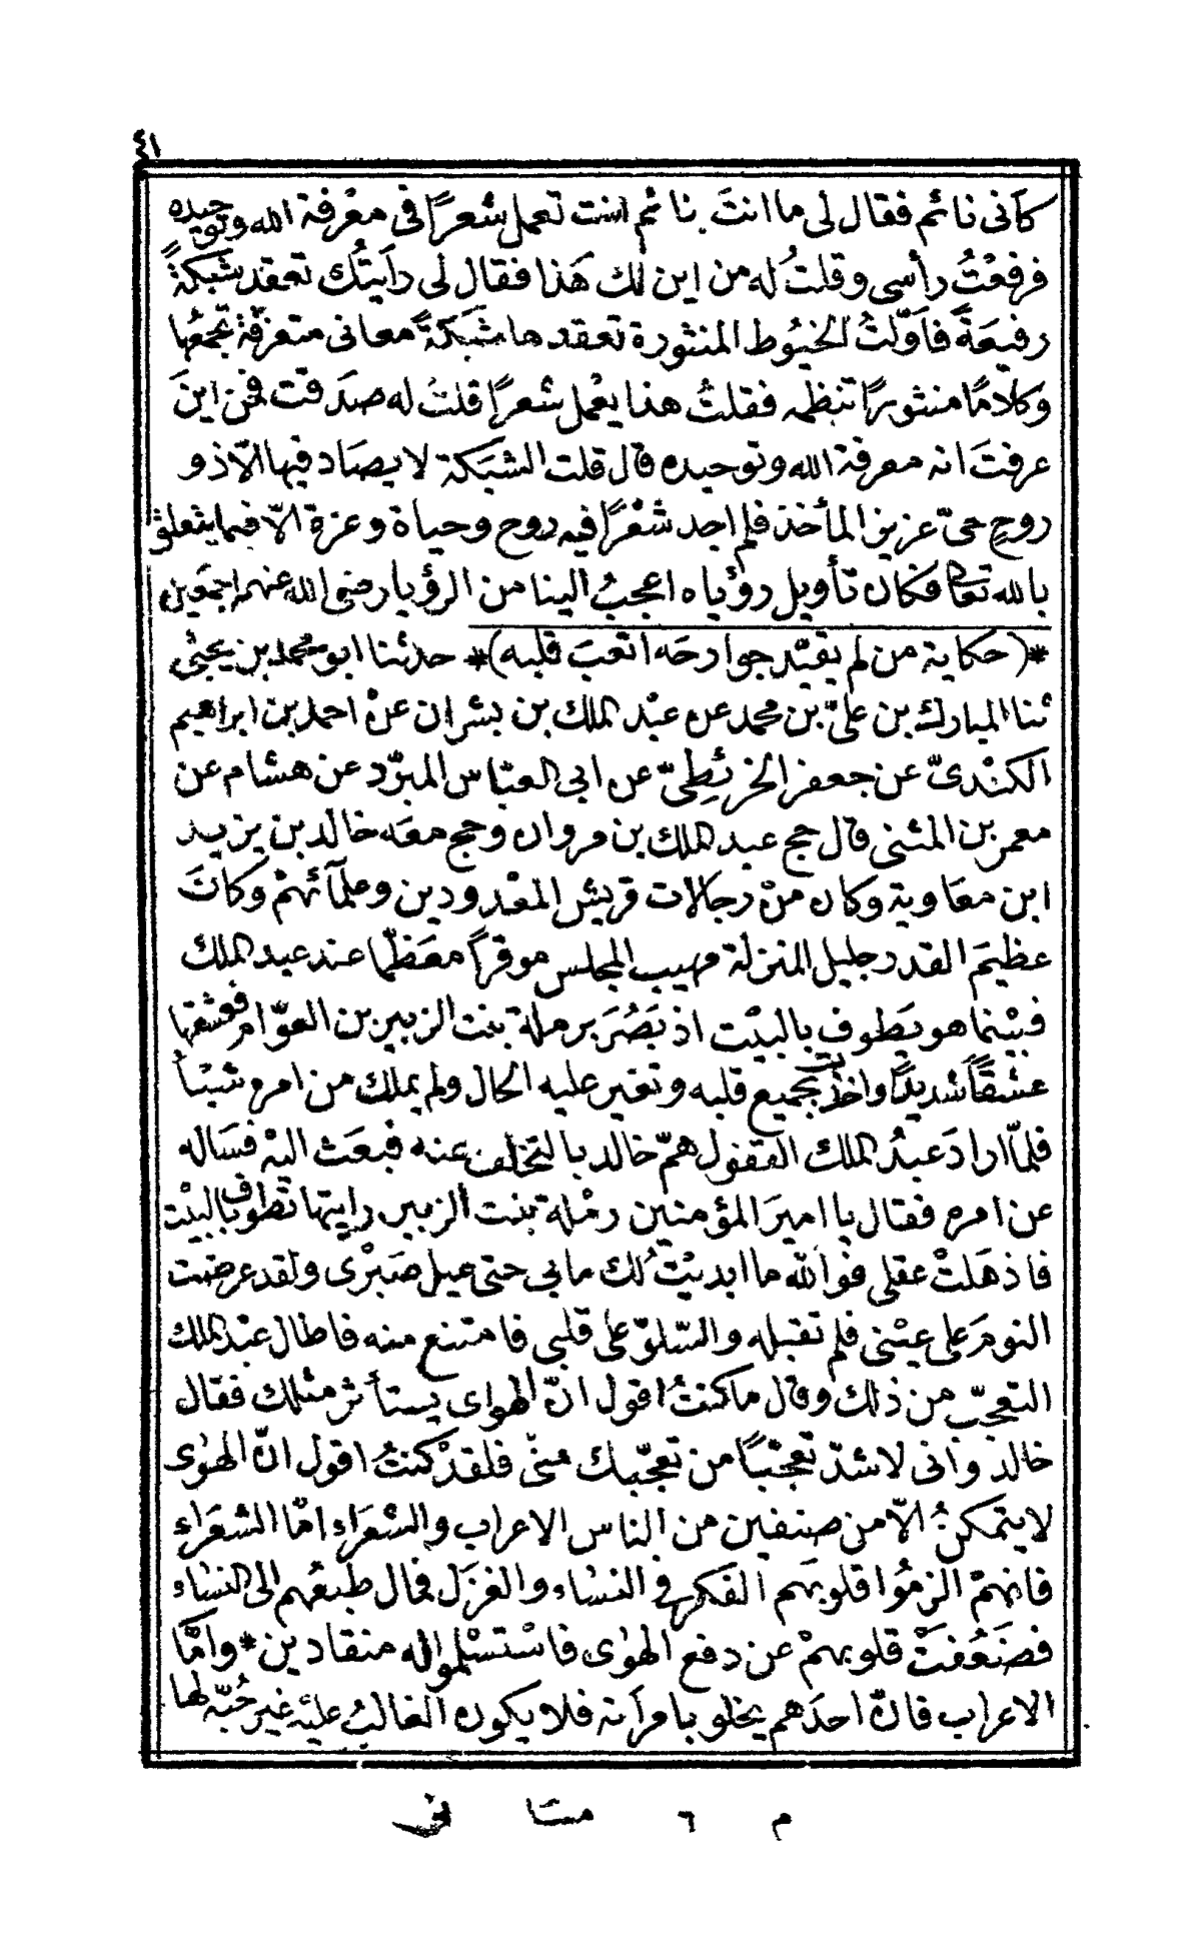 ٤١
كأنى نائم فقال لى ما انتَ بنائم انت تعمل شعرًا فى معْرفة الله وتوحيده
فرفعْتُ رأسى وقلتُ له من اين لك هَذا فقال لى رايتُك تعقد شبكةً
رفيعَةً فاَوّلتُ الخيُوط المنثورة تعقدها شَبكةً معانى متفرّقة تجمعُها
وكلامًا منثورًا تنظمه فقلتُ هذا يعْمل شعرًا قلتُ له صدَقت فمن اينَ
عرفتَ انه معرفة الله وتوحيده قال قلت الشبَكة لا يصَاد فيها الّا ذو
روحٍ حىّ عزيز المأخذ فلم اجد شعْرًا فيه روح وحياة وعزة الّا فيما يتعلق
بالله تعالى فكان تأويل روُياه اعجبُ الينا من الرؤيا رضى الله عنهم اجمَعين
*(حكاية من لم يقيّد جوارحَه اتعبَ قلبه)* حدثنا ابو محمد بن يحيٰى
ثنا المبارك بن علىّ بن محمد عن عبْد الملك بن بشران عنْ احمد بن ابراهيم
الكنْدىّ عن جعفر الخرئطِىّ عن ابى العبّاس المبرّد عن هشام عن
معمر بن المثنى قال حج عبد الملك بن مروان وحج معَه خالد بن يزيد
ابن معَاوية وكان منْ رجالات قريش المعْدودين وعلمآئهمْ وكانَ
عظيمَ القدر جليل المنزلة مهيب المجلس موقرًا معَظّما عند عبد الملك
فبيْنما هو يَطوف بالبيْت اذ بَصُرَ برملة بنت الزبير بن العوّام فعشقها
عشقًا شديدًا واخذت بجميع قلبه وتغير عليه الحال ولم يملك من امره شيئًا
فلمّا ارادَ عبدُ الملك القفول همّ خالد بالتخلف عنه فبعَث اليْه فسَاله
عن امره فقال يا اميرَ المؤمنين رمْلة بنت الزبير رايتها تطوف بالبيْت
فاذهَلتْ عقلى فوالله ما ابديْتُ لك ما بى حتى عيل صَبْرى ولقد عرضت
النومَ على عيْنى فلم تقبله والسّلوّ على قلبى فامتنع منه فاطال عبْد الملك
التعجّب من ذلك وقال ما كنتُ اقول انّ الهواى يستأثر مثلك فقال
خالد وانى لاشدّ تعجّبًا من تعجّبك منّى فلقدْ كنتُ اقول انّ الهوٰى
لا يتمكنُ الّا من صنفين من الناس الاعراب والشعَراء امّا الشعَراء
فانهمْ الزمُوا قلوبَهم الفكر فى النسَاء والغزَل فمال طبعُهم الى النسَاء
فضَعُفتْ قلوبهمْ عن دفع الهوٰى فاسْتسْلموا له منقادين * وامّا
الاعراب فانّ احدَهم يخلو بامرآته فلا يكون الغالبُ عليْه غير حُبّه لها
م ٦ مسَا فى